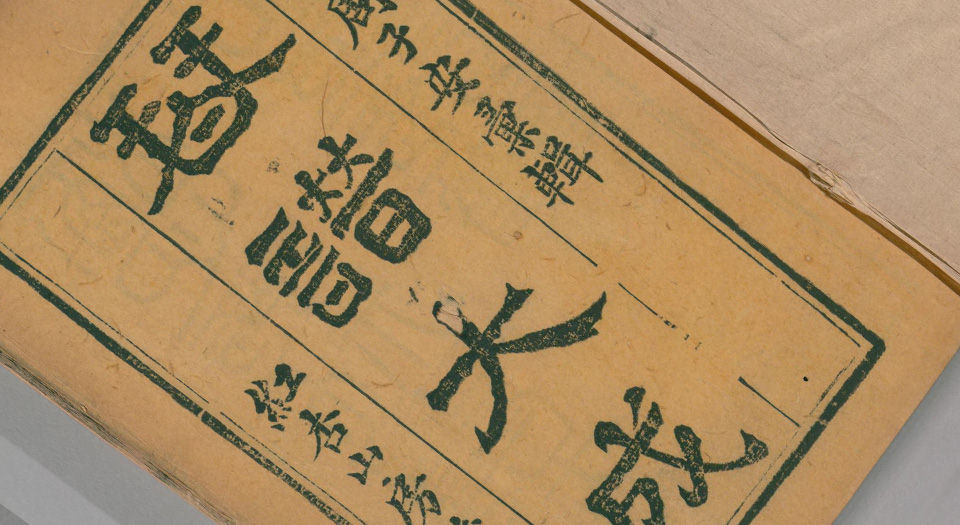 周子安彙輯
琴譜大成
紅杏山房